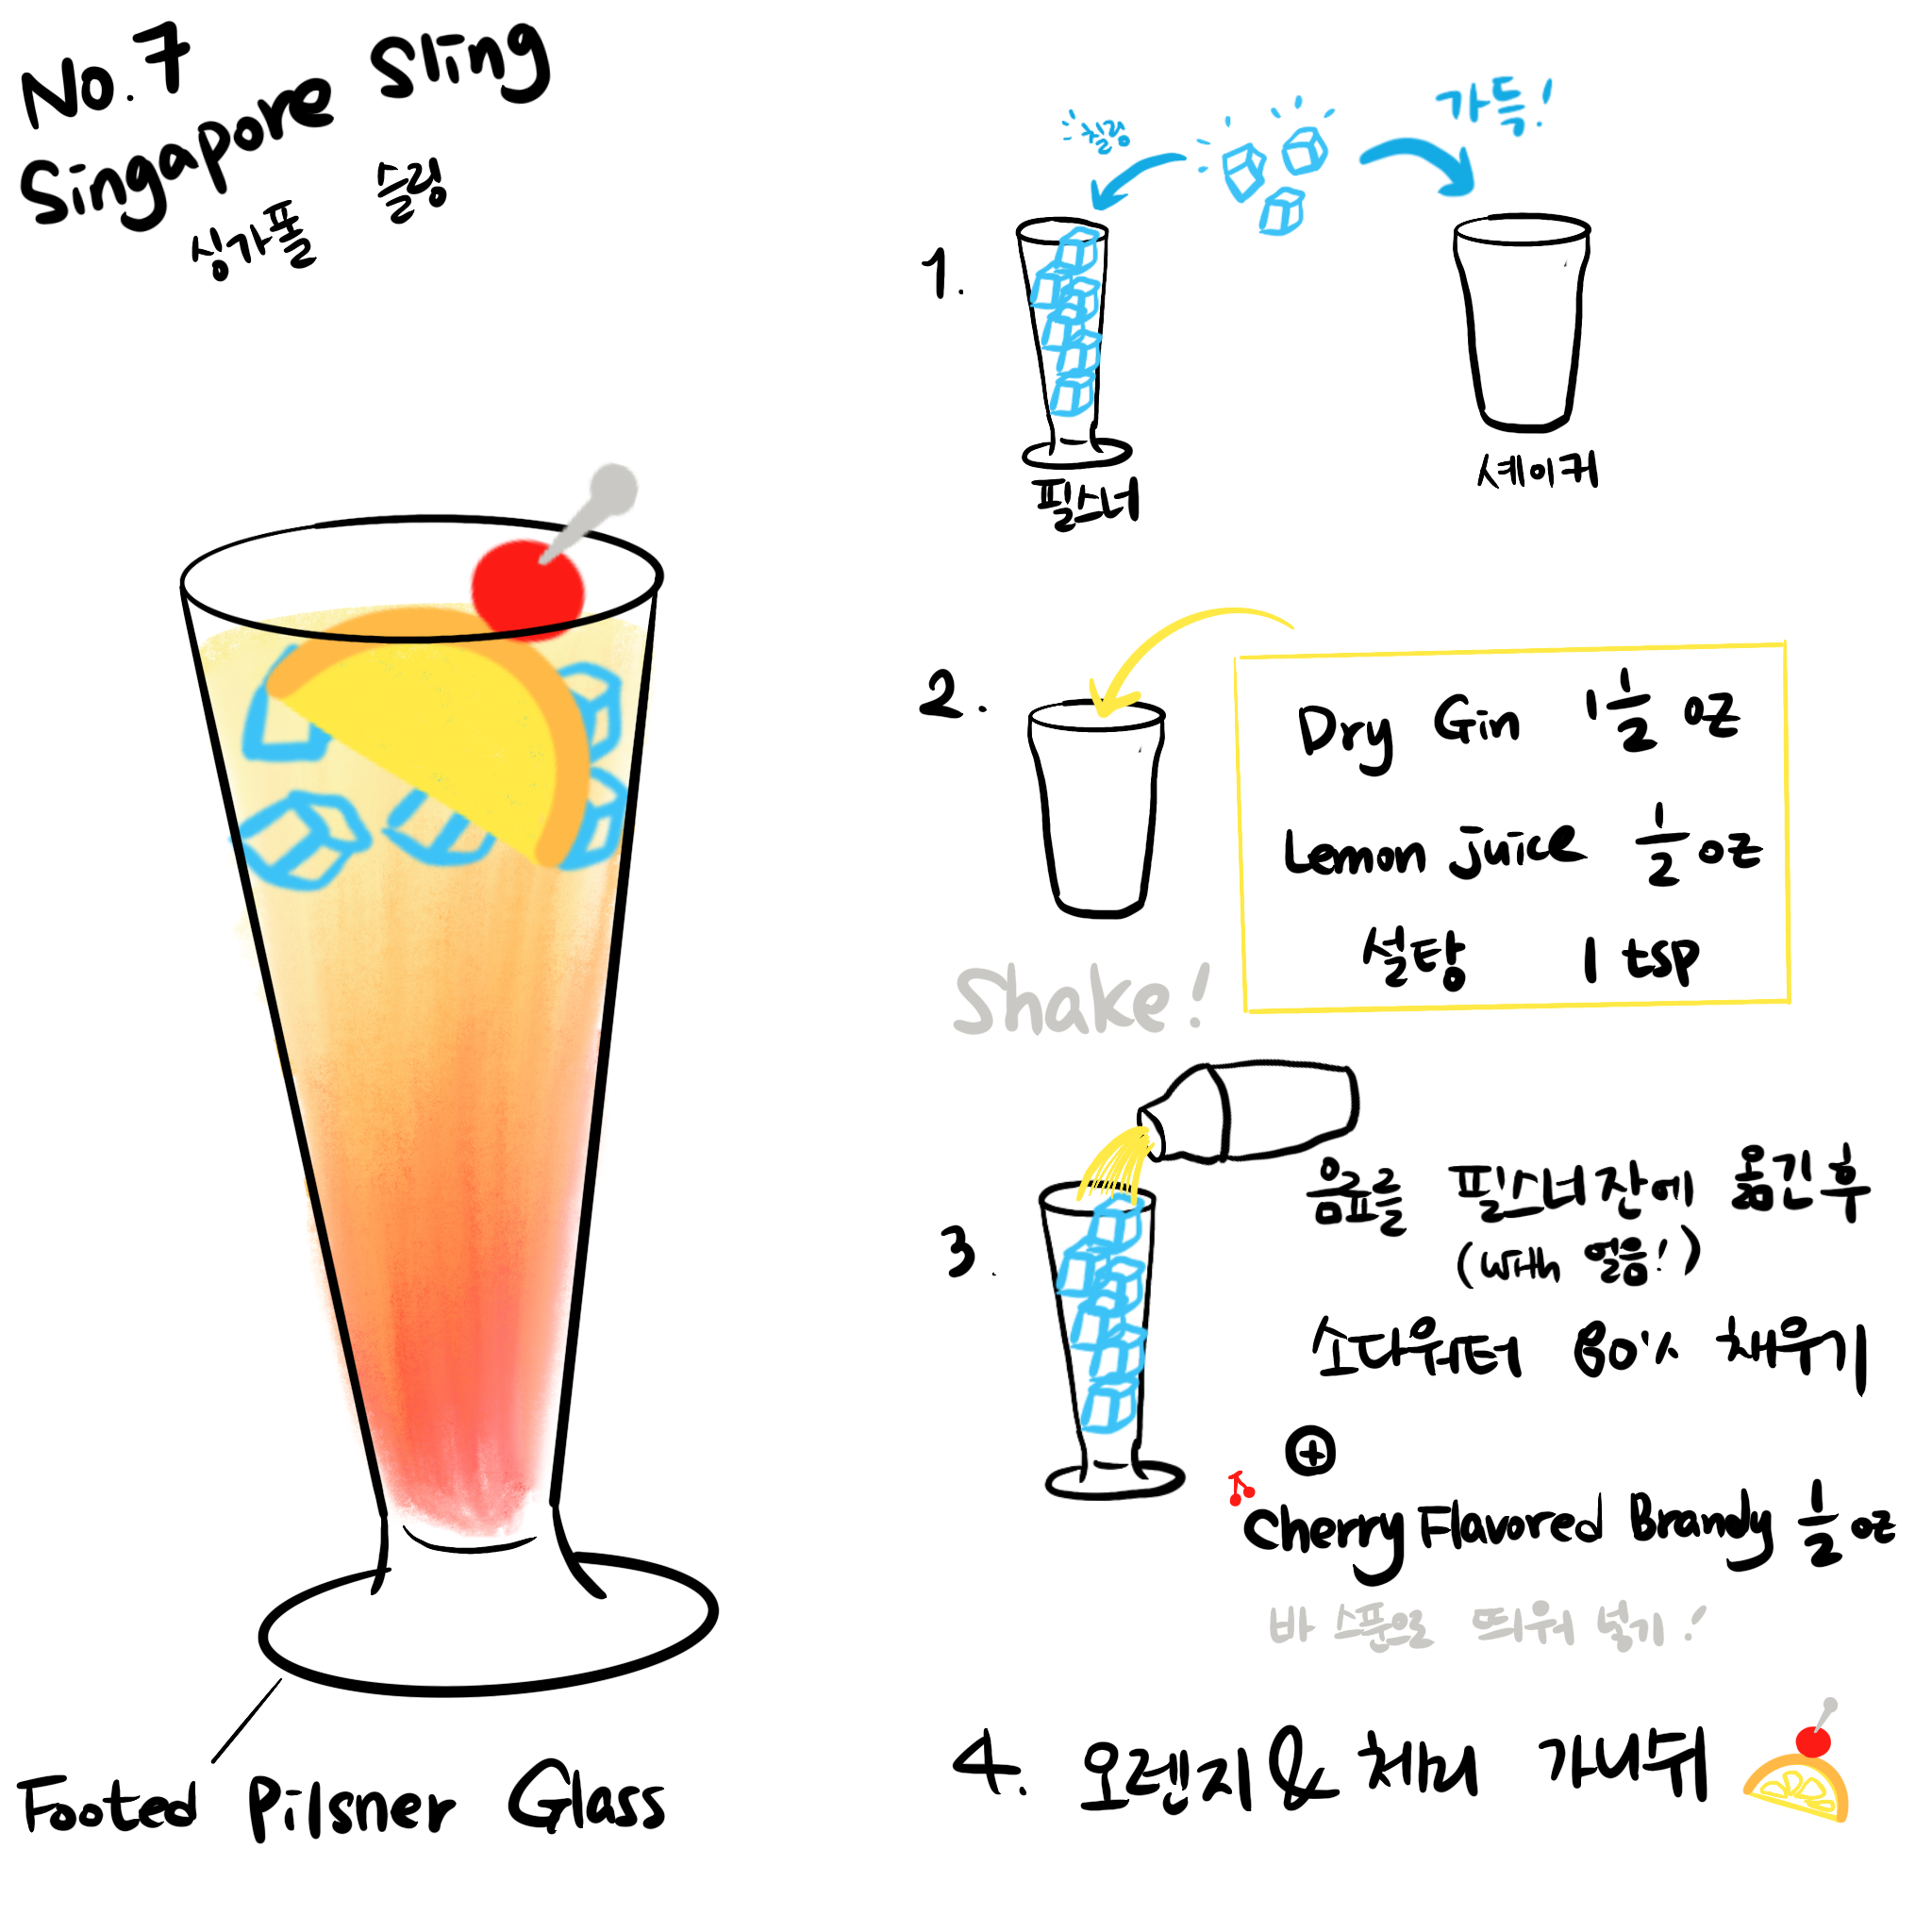 No.7
Singapore Sling
싱가폴 슬링
칠링
가득!
1.
필스너
셰이커
2.
Dry Gin 1 1/2 oz
Lemon juice 1/2 oz
설탕 1 tsp
Shake!
3.
음료를 필스너잔에 옮긴 후
(with 얼음!)
소다워터 80% 채우기
⊕
Cherry Flavored Brandy 1/2 oz
바 스푼으로 띄워 넣기!
4. 오렌지 & 체리 가니쉬
Footed Pilsner Glass